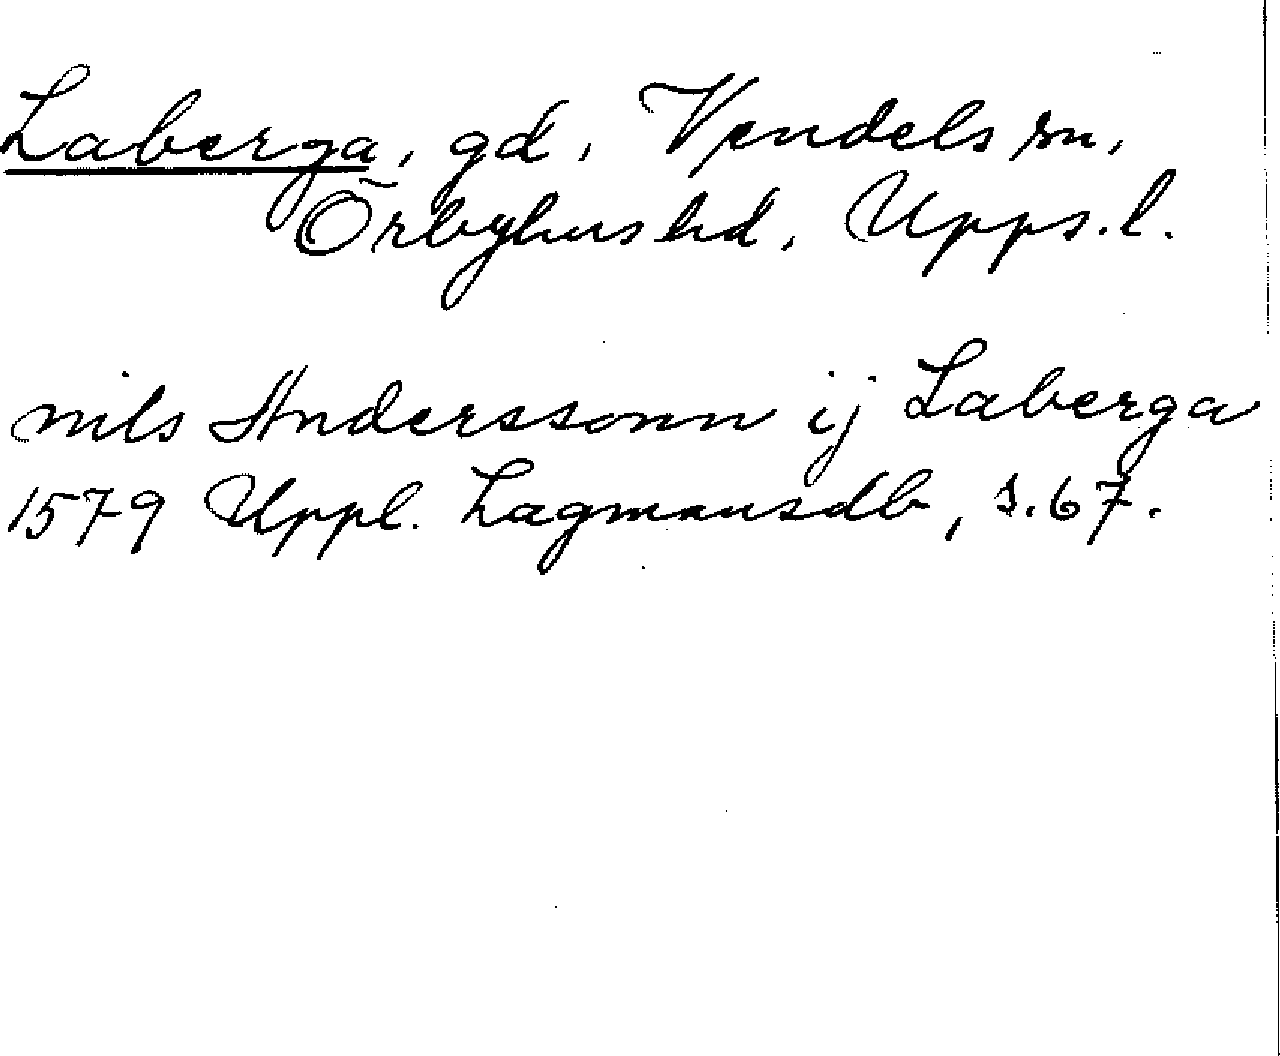 Laberga, gd, Vendels sn,
Örbyhus hd, Upps. l.
nils Anderssonn ij Laberga
1579 Uppl. Lagmansdb, s. 67.